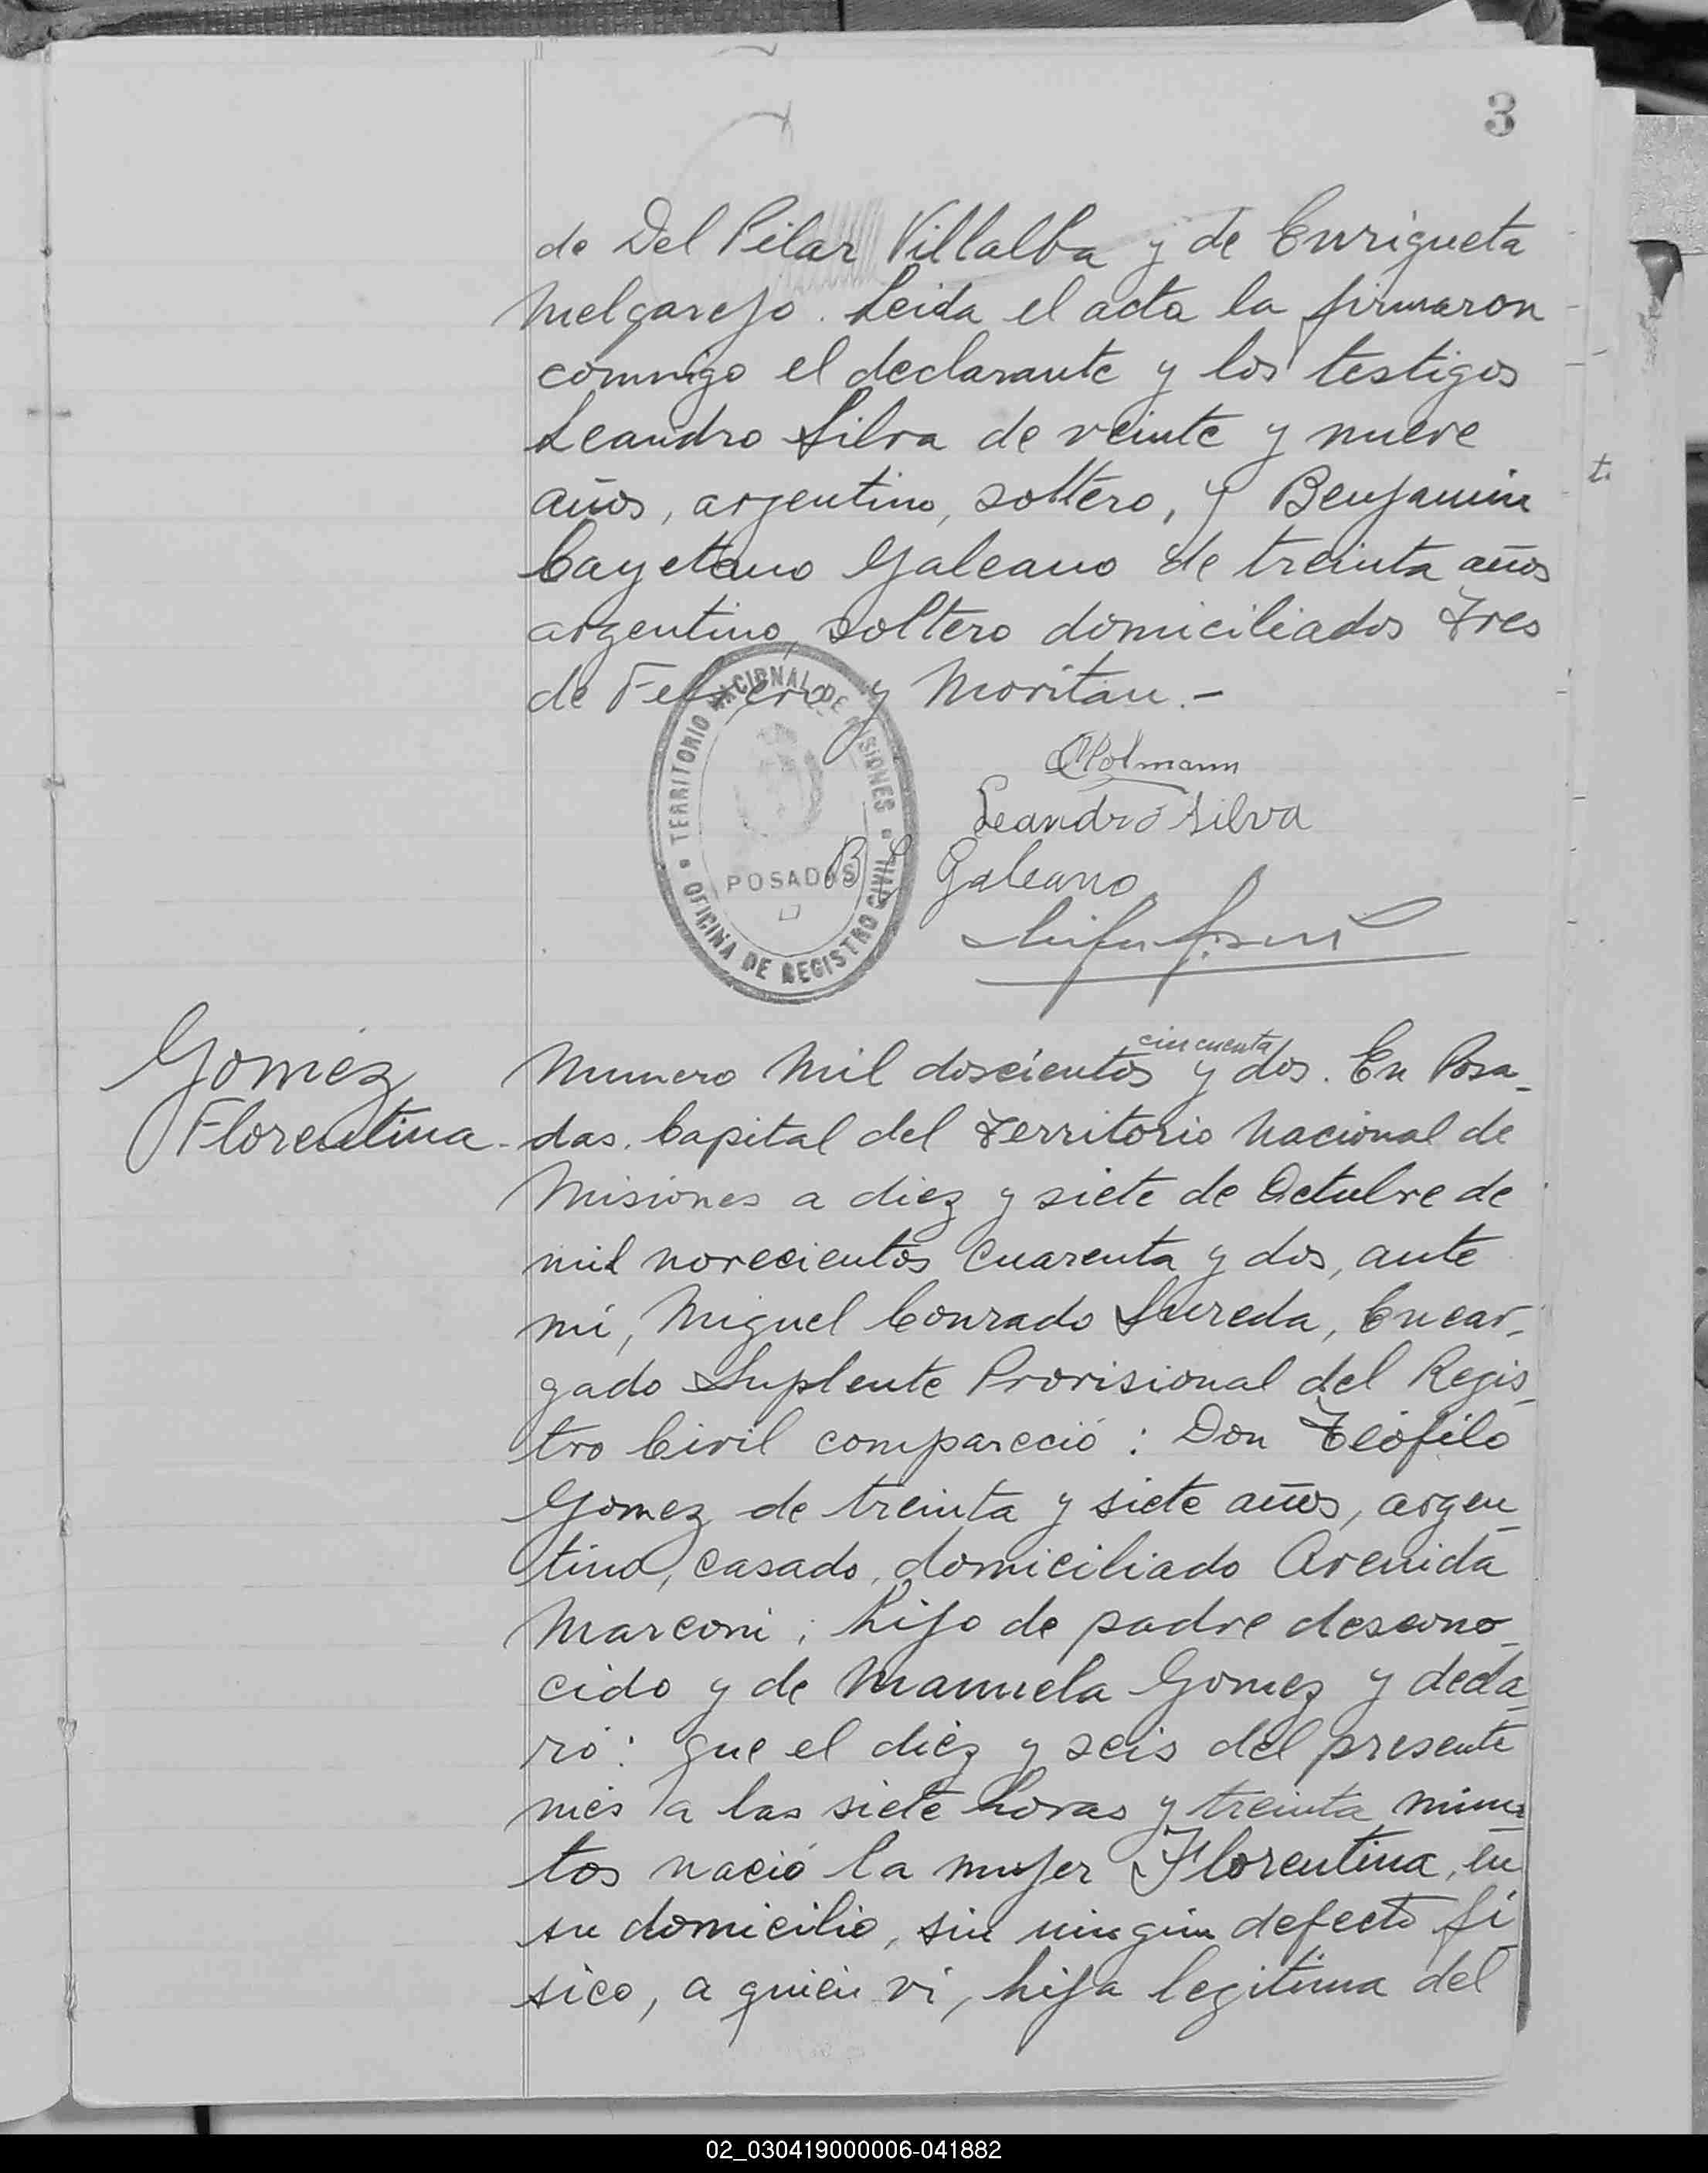 3
de Del Pilar Villalba y de Enriqueta
Melgarejo. Leida el acta la firmaron
conmigo el declarante y los testigos
Leandro Silva de veinte y nueve
años, argentino, soltero, y Benjamin
Cayetano Galeano de treinta años
argentino, soltero domiciliados Tres
de Febrero y Moritan.-
TERRITORIO NACIONAL DE MISIONES
POSADAS
OFICINA DE REGISTRO CIVIL
Holmann
Leandro Silva
B C Galeano
cincuenta
Gomez
Florentina
Numero Mil doscientos y dos. En Posa-
das. Capital del Territorio Nacional de
Misiones a diez y siete de Octubre de
mil novecientos cuarenta y dos, ante
mi, Miguel Conrado Sureda, Encar-
gado Suplente Provisional del Regis-
tro Civil compareció: Don Teófilo
Gomez de treinta y siete años, argen-
tino, casado, domiciliado Avenida
Marconi; hijo de padre descono-
cido y de Manuela Gomez y decla-
ró: que el diez y seis del presente
mes a las siete horas y treinta minu-
tos nació la mujer Florentina, en
su domicilio, sin ningún defecto fí
sico, a quien vi, hija legitima del
t.
02_030419000006-041882